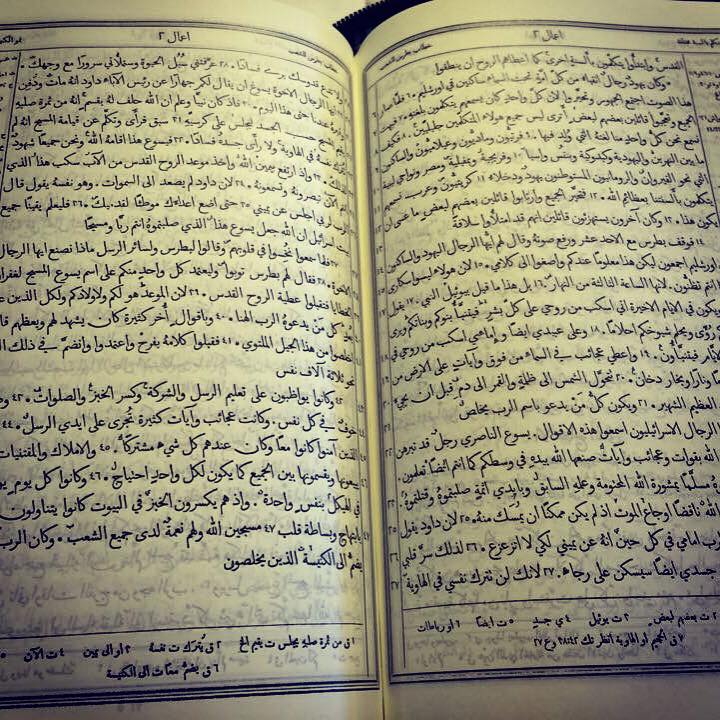 اعمال ٢
القدس وابتدأوا يتكلمون بألسنة اخرى كما اعطاهم الروح ان ينطقوا
وكان يهود رجال اتقياء من كل امة تحت السماء ساكنين في اورشليم. ٦ فلما صار
هذا الصوت اجتمع الجمهور وتحيروا لان كل واحد كان يسمعهم يتكلمون بلغته. ٧ فبهت
الجميع وتعجبوا قائلين بعضهم لبعض أترى ليس جميع هؤلاء المتكلمين جليليين. ٨ فكيف
نسمع نحن كل واحد منا لغته التي ولد فيها. ٩ فرتيون وماديون وعيلاميون والساكنون
ما بين النهرين واليهودية وكبدوكية وبنتس واسيا ١٠ وفريجية وبمفيلية ومصر ونواحي ليبية
التي نحو القيروان والرومانيون المستوطنون يهود ودخلاء ١١ كريتيون وعرب نسمعهم
يتكلمون بألسنتنا بعظائم الله. ١٢ فتحير الجميع وارتابوا قائلين بعضهم لبعض ما عسى ان
يكون هذا. ١٣ وكان آخرون يستهزئون قائلين انهم قد امتلأوا سلافة
١٤ فوقف بطرس مع الاحد عشر ورفع صوته وقال لهم ايها الرجال اليهود والساكنون
في اورشليم اجمعون ليكن هذا معلوما عندكم واصغوا الى كلامي. ١٥ لان هؤلاء ليسوا سكارى
كما انتم تظنون. لانها الساعة الثالثة من النهار. ١٦ بل هذا ما قيل بيوئيل النبي. ١٧ يقول
ويكون في الايام الاخيرة اني اسكب من روحي على كل بشر فيتنبأ بنوكم وبناتكم ويرى
رؤى ويحلم شيوخكم احلاما. ١٨ وعلى عبيدي ايضا وامائي اسكب من روحي في
الايام فيتنبأون. ١٩ واعطي عجائب في السماء من فوق وآيات على الارض من
دما ونارا وبخار دخان. ٢٠ تتحول الشمس الى ظلمة والقمر الى دم قبل ان يجيء
العظيم الشهير. ٢١ ويكون كل من يدعو باسم الرب يخلص
الرجال الاسرائيليون اسمعوا هذه الاقوال. يسوع الناصري رجل قد تبرهن
الله بقوات وعجائب وآيات صنعها الله بيده في وسطكم كما انتم ايضا تعلمون.
مسلما بمشورة الله المحتومة وعلمه السابق وبايدي اثمة صلبتموه وقتلتموه.
الله ناقضا اوجاع الموت اذ لم يكن ممكنا ان يمسك منه. ٢٥ لان داود يقول
الرب امامي في كل حين انه عن يميني لكي لا اتزعزع. ٢٦ لذلك سر قلبي
جسدي ايضا سيسكن على رجاء. ٢٧ لانك لن تترك نفسي في الهاوية
٢ ت بعضهم لبعض ٣ ت يوئيل ٤ ي جسد ٥ ت ايضا ٦ او رباطات
اعمال ٢
خطاب بطرس للشعب
قدوسك يرى فسادا. ٢٨ عرفتني سبل الحيوة وستملأني سرورا مع وجهك.
ايها الرجال الاخوة يسوغ ان يقال لكم جهارا عن رئيس الآباء داود انه مات ودفن
عندنا حتى هذا اليوم. ٣٠ فاذ كان نبيا وعلم ان الله حلف له بقسم انه من ثمرة صلبه
الجسد ليجلس على كرسيه ٣١ سبق فرأى وتكلم عن قيامة المسيح انه لم
نفسه في الهاوية ولا رأى جسده فسادا. ٣٢ فيسوع هذا اقامه الله ونحن جميعا شهود
لذلك. ٣٣ واذ ارتفع بيمين الله واخذ موعد الروح القدس من الآب سكب هذا الذي
الآن تبصرونه وتسمعونه. ٣٤ لان داود لم يصعد الى السموات. وهو نفسه يقول قال
لربي اجلس عن يميني ٣٥ حتى اضع اعداءك موطئا لقدميك. ٣٦ فليعلم يقينا جميع
بيت اسرائيل ان الله جعل يسوع هذا الذي صلبتموه انتم ربا ومسيحا
فلما سمعوا نخسوا في قلوبهم وقالوا لبطرس ولسائر الرسل ماذا نصنع ايها الرجال
الاخوة. ٣٨ فقال لهم بطرس توبوا وليعتمد كل واحد منكم على اسم يسوع المسيح لغفران
الخطايا فتقبلوا عطية الروح القدس. ٣٩ لان الموعد هو لكم ولاولادكم ولكل الذين على
بعد كل من يدعوه الرب الهنا. ٤٠ وباقوال أخر كثيرة كان يشهد لهم ويعظهم قائلا
اخلصوا من هذا الجيل الملتوي. ٤١ فقبلوا كلامه بفرح واعتمدوا وانضم في ذلك اليوم
نحو ثلاثة آلاف نفس
٤٢ وكانوا يواظبون على تعليم الرسل والشركة وكسر الخبز والصلوات. ٤٣ وصار
خوف في كل نفس. وكانت عجائب وآيات كثيرة تجرى على ايدي الرسل. ٤٤
الذين آمنوا كانوا معا وكان عندهم كل شيء مشتركا. ٤٥ والاملاك والمقتنيات
يبيعونها ويقسمونها بين الجميع كما يكون لكل واحد احتياج. ٤٦ وكانوا كل يوم
في الهيكل بنفس واحدة. واذ هم يكسرون الخبز في البيوت كانوا يتناولون
بابتهاج وبساطة قلب ٤٧ مسبحين الله ولهم نعمة لدى جميع الشعب. وكان الرب
يضم الى الكنيسة الذين يخلصون
١ ق من ثمرة صلبه يجلس ت يقيم الخ ٢ ق تترك ت نفسه ٣ او الى يمين ٤ ت الآن ٥
٦ ق يضم معا ت الى الكنيسة